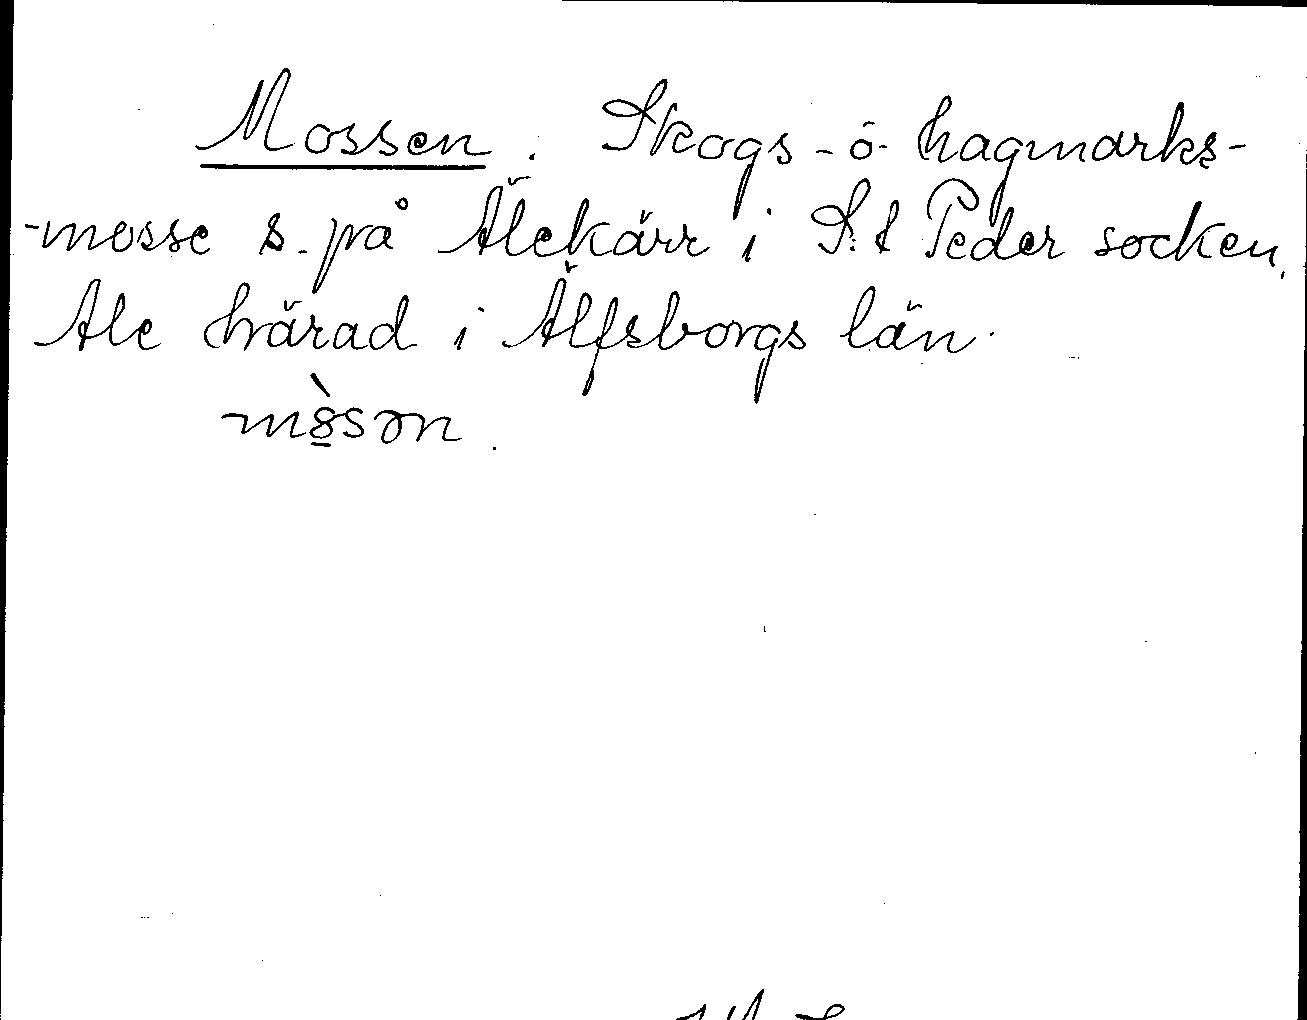 Mossen. Skogs- o- hagmarks-
-mosse s. på Älekärr i S:t Peder socken,
Ale härad i Älfsborgs län.
mòsən.